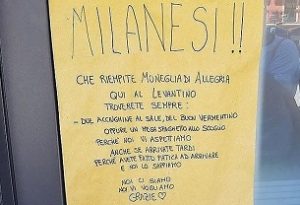 MILANESI!!
CHE RIEMPITE MONEGLIA DI ALLEGRIA
QUI AL LEVANTINO
TROVERETE SEMPRE:
- DUE ACCIUGHINE AL SALE, DEL BUON VERMENTINO
OPPURE UN MEGA SPAGHETTO ALLO SCOGLIO
PERCHÉ NOI VI ASPETTIAMO
ANCHE SE ARRIVATE TARDI
PERCHÉ AVETE FATTO FATICA AD ARRIVARE
E NOI LO SAPPIAMO
NOI CI SIAMO
NOI VI VOGLIAMO
GRAZIE ♡